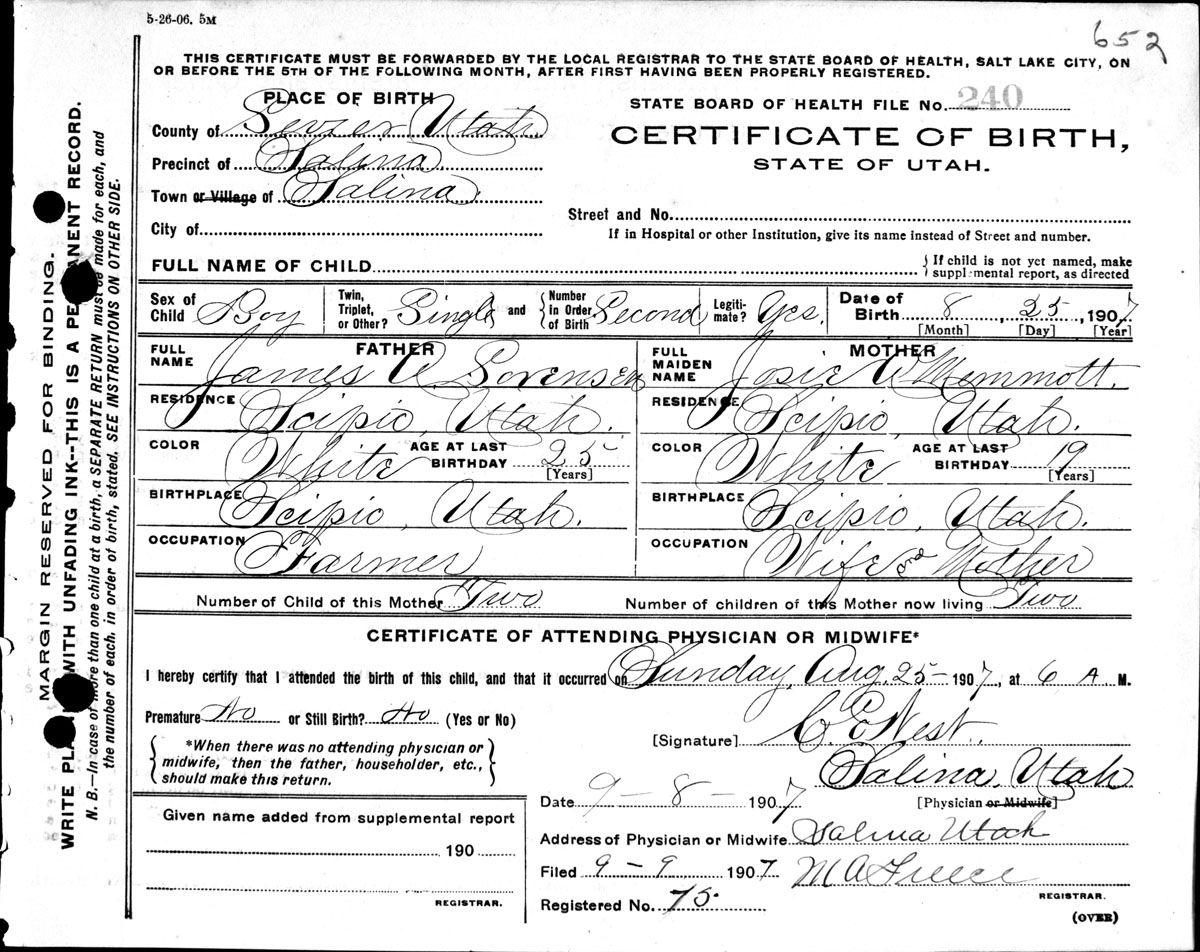 5-26-06. 5M
652
THIS CERTIFICATE MUST BE FORWARDED BY THE LOCAL REGISTRAR TO THE STATE BOARD OF HEALTH, SALT LAKE CITY, ON
OR BEFORE THE 5TH OF THE FOLLOWING MONTH, AFTER FIRST HAVING BEEN PROPERLY REGISTERED.
PLACE OF BIRTH
County of Sevier Utah
Precinct of Salina
Town or Village of Salina
City of
STATE BOARD OF HEALTH FILE No. 240
CERTIFICATE OF BIRTH,
STATE OF UTAH.
Street and No.
If in Hospital or other Institution, give its name instead of Street and number.
FULL NAME OF CHILD
{ If child is not yet named, make
supplemental report, as directed
Sex of Child Boy
Twin, Triplet, or Other? Single and { Number In Order of Birth Second
Legiti-mate? Yes.
Date of Birth 8, 25, 1907
[Month] [Day] [Year]
FATHER
FULL NAME James A Sorensen
RESIDENCE Scipio, Utah.
COLOR White AGE AT LAST BIRTHDAY 25
[Years]
BIRTHPLACE Scipio, Utah.
OCCUPATION Farmer
MOTHER
FULL MAIDEN NAME Josie W Memmott.
RESIDENCE Scipio, Utah.
COLOR White AGE AT LAST BIRTHDAY 19
[Years]
BIRTHPLACE Scipio, Utah.
OCCUPATION Wife and Mother
Number of Child of this Mother Two Number of children of this Mother now living Two
CERTIFICATE OF ATTENDING PHYSICIAN OR MIDWIFE*
I hereby certify that I attended the birth of this child, and that it occurred on Sunday, Aug. 25- 1907, at 6 A M.
Premature No or Still Birth? No (Yes or No)
{ *When there was no attending physician or
midwife, then the father, householder, etc.,
should make this return. }
[Signature] C E West.
Salina, Utah
Date 9-8-1907 [Physician or Midwife]
Given name added from supplemental report
190
REGISTRAR.
Address of Physician or Midwife Salina Utah
Filed 9-9 1907 M A
REGISTRAR.
Registered No. 75.
(OVER)
MARGIN RESERVED FOR BINDING.
WRITE PLAINLY WITH UNFADING INK--THIS IS A PERMANENT RECORD.
N. B.—In case of more than one child at a birth, a SEPARATE RETURN must be made for each, and
the number of each, in order of birth, stated. SEE INSTRUCTIONS ON OTHER SIDE.